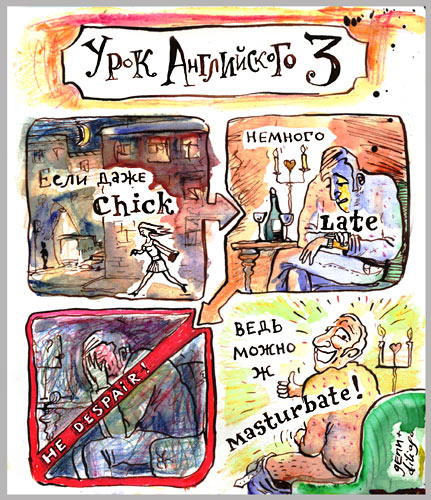 Урок Английского 3
Если даже
chick
немного
Late
НЕ DESPAIR!
ВЕДЬ
МОЖНО
Ж
masturbate!